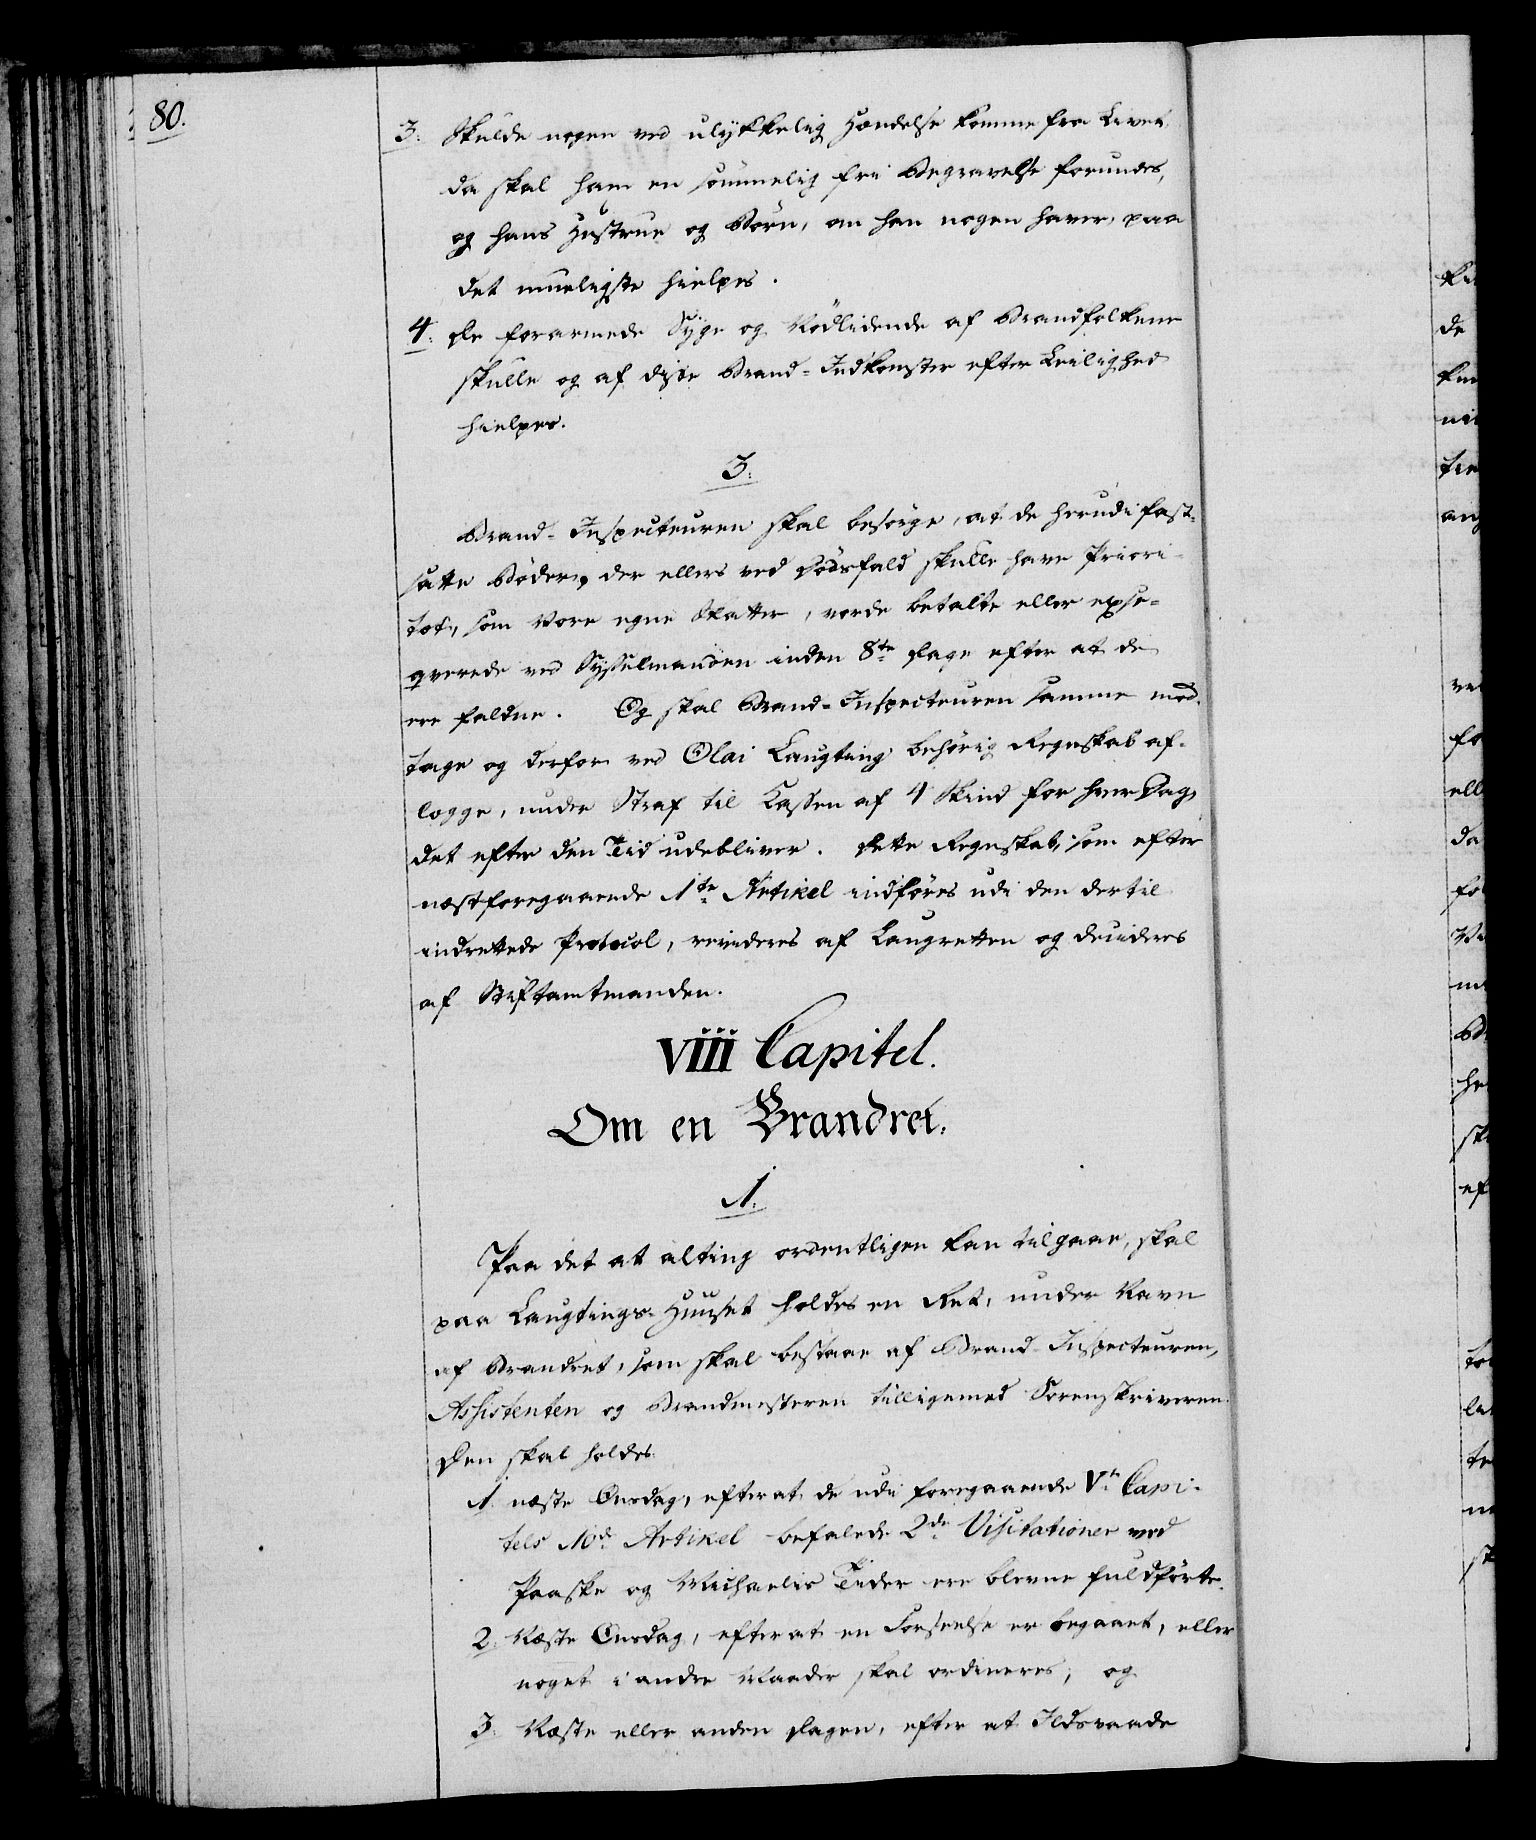 80.
3. Skulde nogen ved ulykkelig Hændelse komme fra Livet,
da skal ham en sømmelig frie Begravelse forundes,
og hans Hustrue og Børn, om han nogen haver, paa
det mueligste hielpes.
4. De forarmede Syge og Nødlidende af Brandfolkene
skulle og af disse Brand-Indkomster efter Leilighed
hielpes.
3.
Brand-Inspecteuren skal besørge, at de herudi fast-
satte Bøder, der ellers ved Dødsfald skulle have Priori-
tet, som Vore egne Skatter, vorde betalte eller exse-
qverede ved Sysselmanden inden 8te Dage efter at de
ere faldne. Og skal Brand-Inspecteuren samme mod-
tage og derfor ved Olai Laugting behørig Regnskab af-
legge, under Straf til Cassen af 4 Skind for hver Dag,
det efter den Tid udebliver. Dette Regnskab, som efter
næstforegaaende 1te Artikel indføres udi den dertil
indrettede Protocol, revideres af Laugretten og decideres
af Stiftamtmanden.
VIII Capitel.
Om en Brandret.
1.
Paa det at alting ordentligen kan tilgaae, skal
paa Laugtings-Huuset holdes en Ret, under Navn
af Brandret, som skal bestaae af Brand-Inspecteuren,
Assistenten og Brandmesteren tilligemed Sorenskriveren.
Den skal holdes
1. næste Onsdag, efterat de udi foregaaende Vte Capi-
tels 10de Artikel befalede 2de Visitationer ved
Paaske og Michaelis Tider ere blevne fuldførte.
2. Næste Onsdag, efterat en Forseelse er begaaet, eller
noget i andre Maader skal ordineres, og
3. Næste eller anden Dagen, efter at Ildsvaade